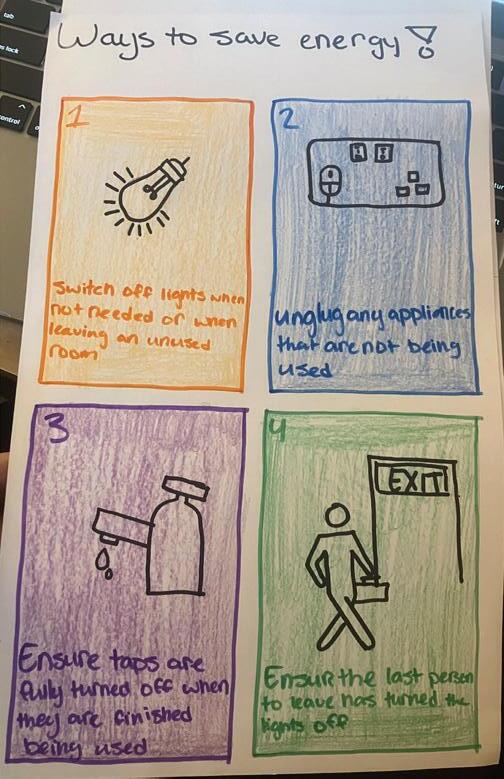 Ways to save energy!
1
Switch off lights when
not needed or when
leaving an unused
room
2
unglug any appliances
that are not being
used
3
Ensure taps are
fully turned off when
they are finished
being used
4
EXIT
Ensur the last person
to leave has turned the
lights off
tab
control